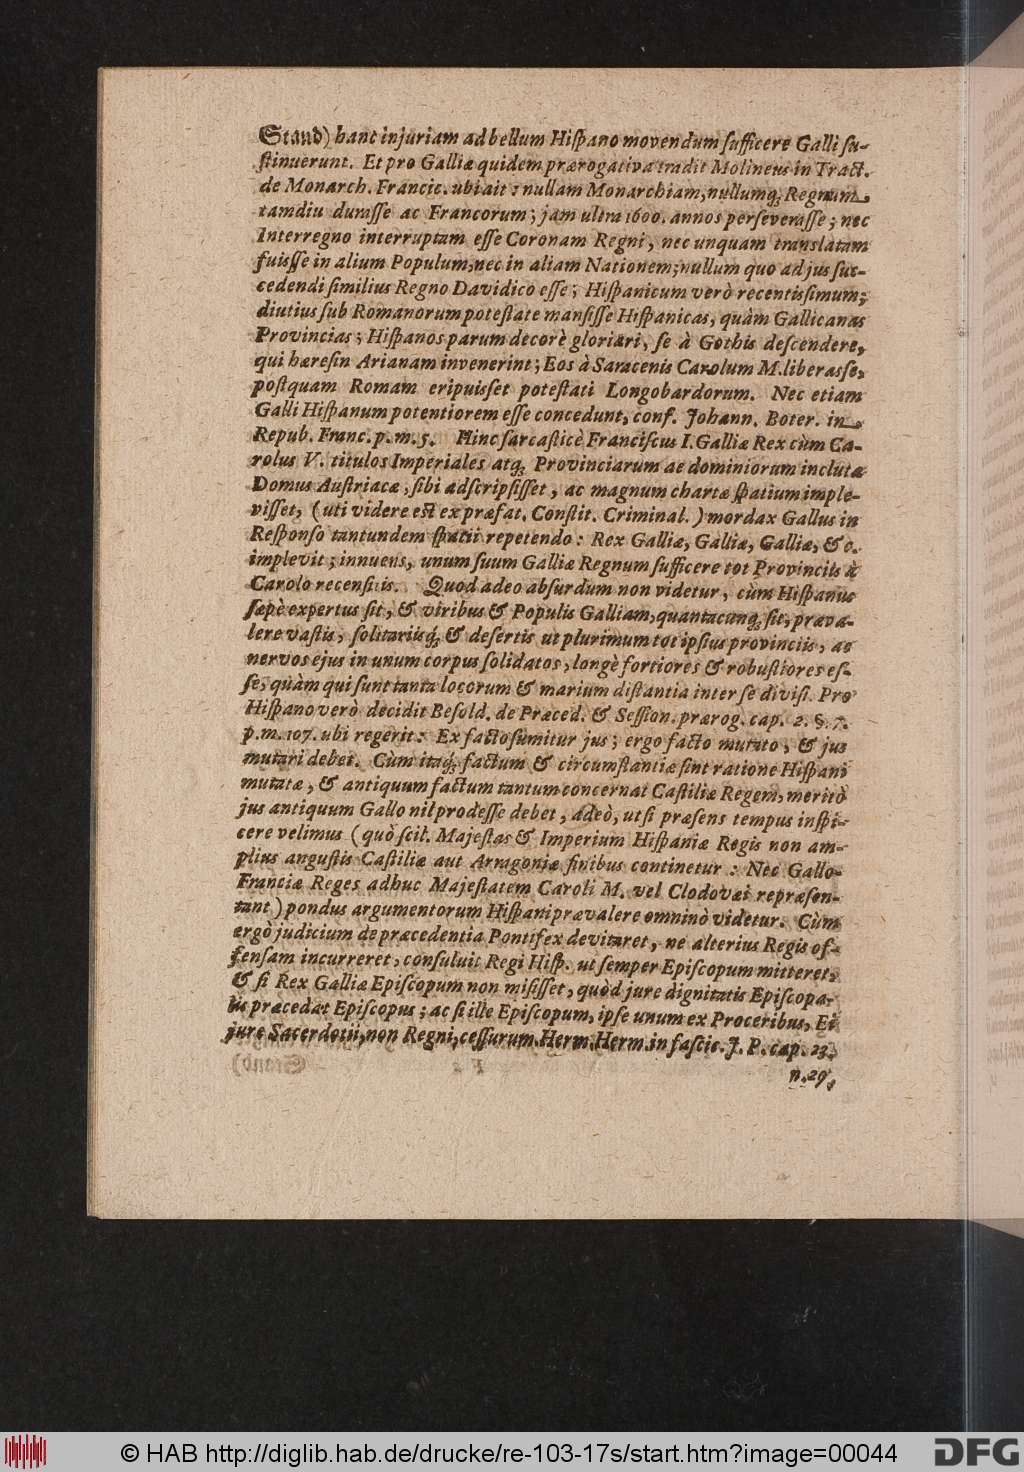 Stand) hanc injuriam ad bellum Hiſpano movendum ſufficere Galli ſu-
ſtinuerunt. Et pro Galliæ quidem prærogativa tradit Molineus in Tract.
de Monarch. Francic. ubi ait: nullam Monarchiam, nullumq́; Regnum
tamdiu duraſſe ac Francorum; jam ultra 1600. annos perſeveraſſe; nec
Interregno interruptam eſſe Coronam Regni, nec unquam translatam
fuiſſe in alium Populum, nec in aliam Nationem; nullum quo ad jus ſuc-
cedendi ſimilius Regno Davidico eſſe; Hiſpanicum verò recentisſimum;
diutius ſub Romanorum poteſtate manſiſſe Hiſpanicas, quàm Gallicanas
Provincias; Hiſpanos parum decorè gloriari, ſe à Gothis deſcendere,
qui hæreſin Arianam invenerint; Eos à Saracenis Carolum M. liberasſe,
poſtquam Romam eripuisſet poteſtati Longobardorum. Nec etiam
Galli Hiſpanum potentiorem eſſe concedunt, conf. Johann. Boter. in
Repub. Franc. p. m. 5. Hinc ſarcaſticè Franciſcus I. Galliæ Rex cùm Ca-
rolus V. titulos Imperiales atq́; Provinciarum ac dominiorum inclutæ
Domus Auſtriacæ, ſibi adſcripſiſſet, ac magnum chartæ ſpatium imple-
viſſet, (uti videre eſt ex præfat. Conſtit. Criminal.) mordax Gallus in
Reſponſo tantundem ſpatii repetendo: Rex Galliæ, Galliæ, Galliæ, & c.
implevit; innuens, unum ſuum Galliæ Regnum ſufficere tot Provinciis à
Carolo recenſitis. Quod adeo abſurdum non videtur, cùm Hiſpanus
ſæpè expertus ſit, & viribus & Populis Galliam, quantacunq́; ſit, præva-
lere vaſtis, ſolitariisq́; & deſertis ut plurimum tot ipſius provinciis, ac
nervos ejus in unum corpus ſolidatos, longè fortiores & robuſtiores eſ-
ſe, quàm qui ſunt tanta locorum & marium diſtantia inter ſe diviſi. Pro
Hiſpano verò decidit Beſold. de Præced. & Seſſion. prærog. cap. 2. §. 7.
p. m. 107. ubi regerit: Ex facto ſumitur jus; ergo facto mutato, & jus
mutari debet. Cùm itaq́; factum & circumſtantiæ ſint ratione Hiſpani
mutatæ, & antiquum factum tantum concernat Caſtiliæ Regem, meritò
jus antiquum Gallo nil prodeſſe debet, adeò, ut ſi præſens tempus inſpi-
cere velimus (quò ſcil. Majeſtas & Imperium Hiſpaniæ Regis non am-
plius anguſtis Caſtiliæ aut Arragoniæ finibus continetur: Nec Gallo-
Franciæ Reges adhuc Majeſtatem Caroli M. vel Clodovæi repræſen-
tant) pondus argumentorum Hiſpani prævalere omninò videtur. Cùm
ergò judicium de præcedentia Pontifex devitaret, ne alterius Regis of-
fenſam incurreret, conſuluit Regi Hiſp. ut ſemper Epiſcopum mitteret,
& ſi Rex Galliæ Epiſcopum non miſiſſet, quòd jure dignitatis Epiſcopa-
lis præcedat Epiſcopus; ac ſi ille Epiſcopum, ipſe unum ex Proceribus, Ei
jure Sacerdotii, non Regni, ceſſurum. Herm. Herm. in faſcic. J. P. cap. 23.
n. 29.
© HAB http://diglib.hab.de/drucke/re-103-17s/start.htm?image=00044
DFG